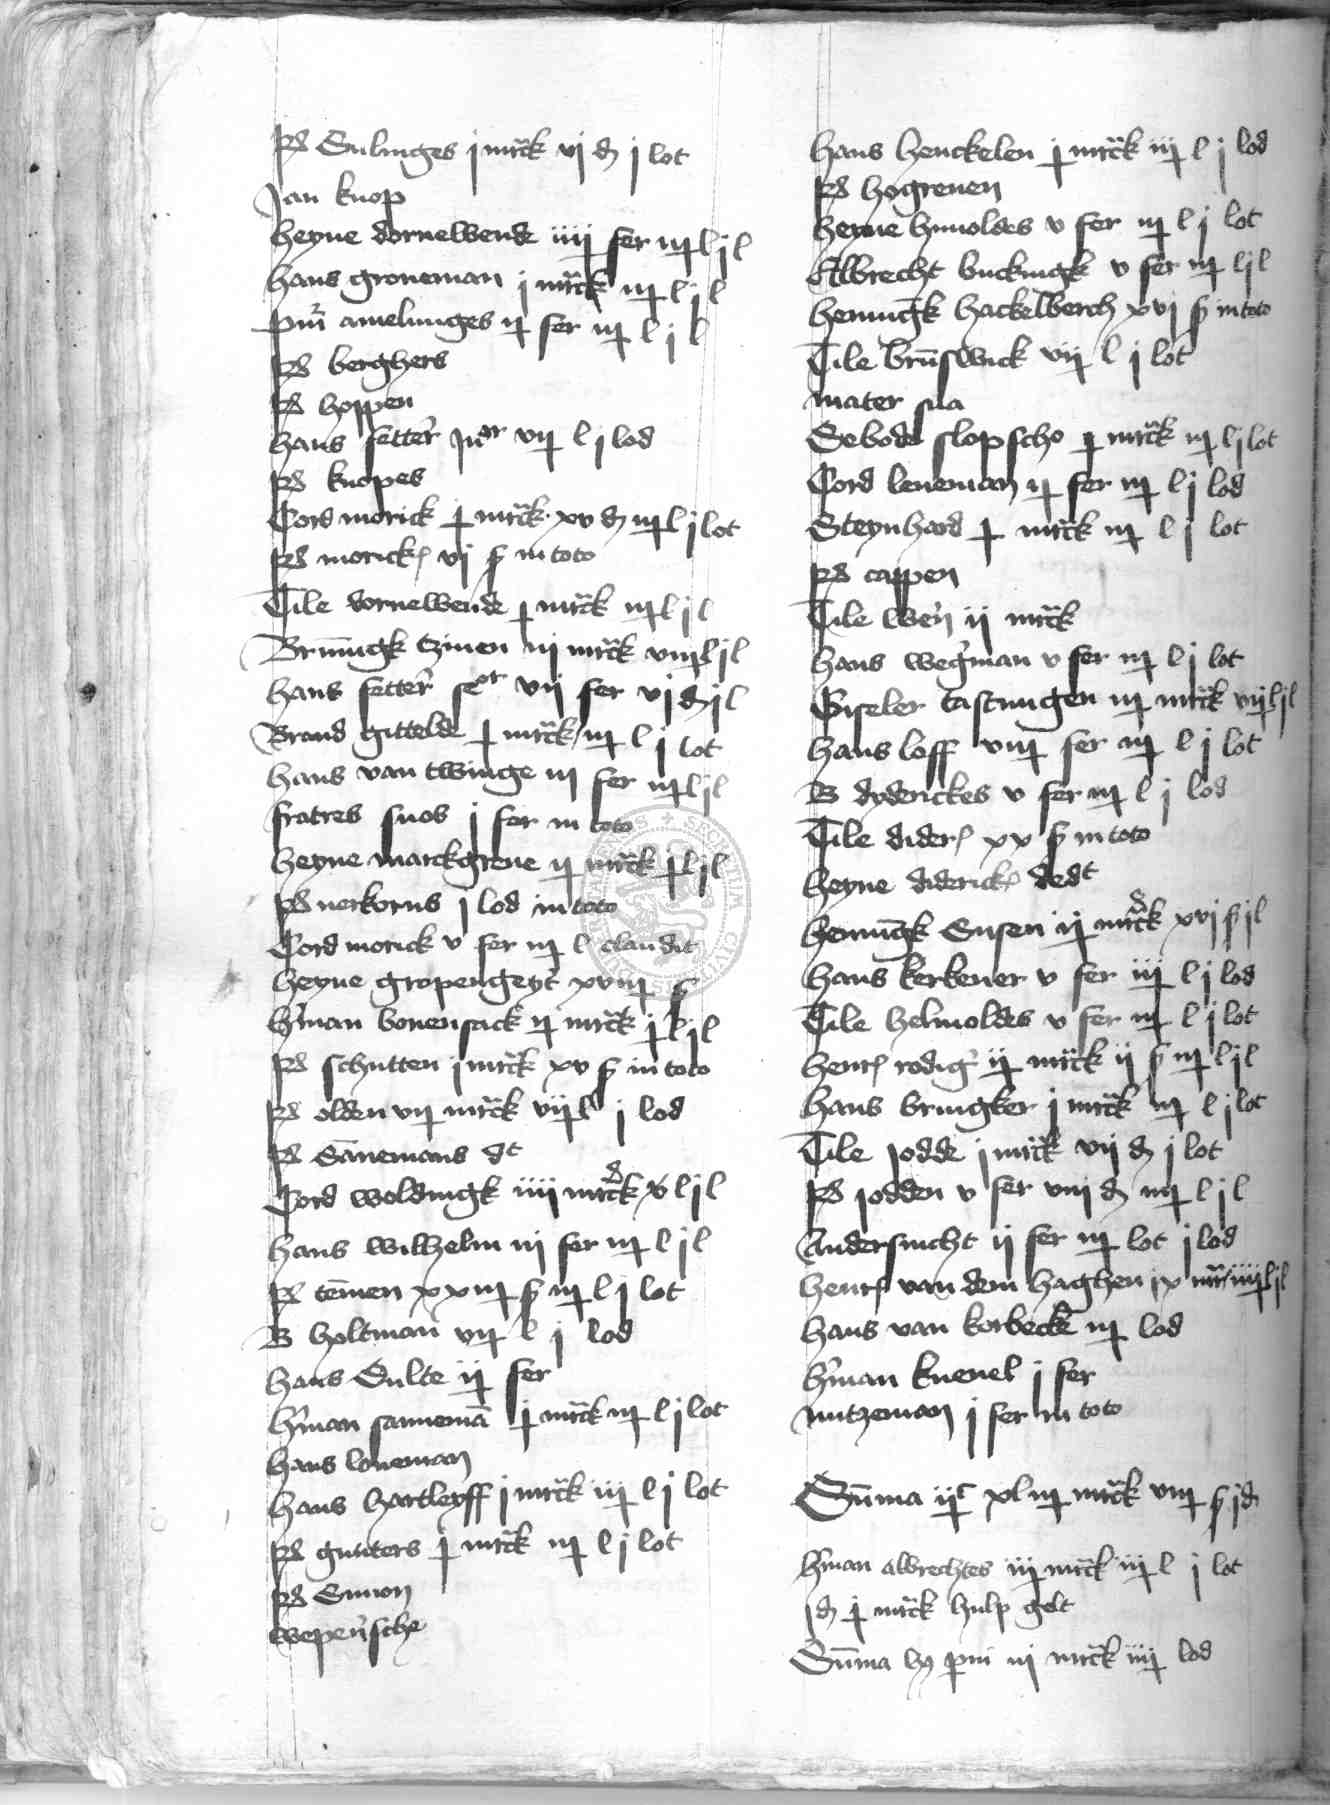 Rd Sulinges j mrck vj d j lot
Jan knop
heyne dornewende iiij fer iij l j l
hans groneman j mrck iij l j l
amelunges ij fer iij l j l
Rd berghers
Rd hoppen
hans setter Juor vij l j lod
Rd knopes
Cord morick j mrck xv d iij l j lot
Rd morick vj in toto
Tile dornewende j mrck iij l j l
Brunigk tzinen iij mrck viij l j l
hans setter seor vij fer vj d j l
Brand gittelde j mrck iij l j lot
hans van twinge iij fer iij l j l
fratres suos j fer in toto
heyne marckgreue ij mrck j l j l
Rd nerkorns j lod in toto
Cord morick v fer iij l claudit
heyne gropengeyt xviij
hman bonensack ij mrck j l j l
Rd schutten j mrck xv in toto
Rd olden vij mrck vij l j lod
Rd Sanemans dt
Cord woldingk iiij mrck x l j l
hans wilhelm iij fer iij l j l
Rd temen xxiij iij l j lot
B holtman vij l j lod
hans Dulte ij fer
hman sannema j mrck iij l j lot
hans loneman
hans hartleyff j mrck iij l j lot
Rd gunters j mrck iij l j lot
Rd Simon
wepensche
hans henckelen j mrck iij l j lod
Rd hogreuen
heyne hunoldes v fer iij l j lot
Albrecht buckingk v fer iij l j l
henningk hackelberch xvj in toto
Tile brunswick vij l j lot
mater sua
Sebode slopscho j mrck iij l j lot
Cord leneman ij fer iij l j lod
Steynhard j mrck iij l j lot
Rd cappen
Tile wen ij mrck
hans wegman v fer iij l j lot
Giseler tastungen iij mrck vij l j l
hans loff viij fer iij l j lot
B dyderickes v fer iij l j lod
Tile dider xx in toto
heyne diderick dedt
henningk Susen ij mrck xvj j l
hans kerkener v fer iij l j lod
Tile helmoldes v fer iij l j lot
henr rodig ij mrck ij iij l j l
hans bringker j mrck iij l j lot
Tile jodde j mrck vij d j lot
Rd jodden v fer viij d iij l j l
Andersmicht ij fer iij lot j lod
henr van dem haghen ix mr iiij l j l
hans van korbeck iij lod
hman kneuel j fer
mutzeman j fer in toto
Suma ijc xliij mrck viij j d
hman albrechtes iij mrck iij l j lot
j d j mrck hulp gelt
Suma iij mrck iiij lod